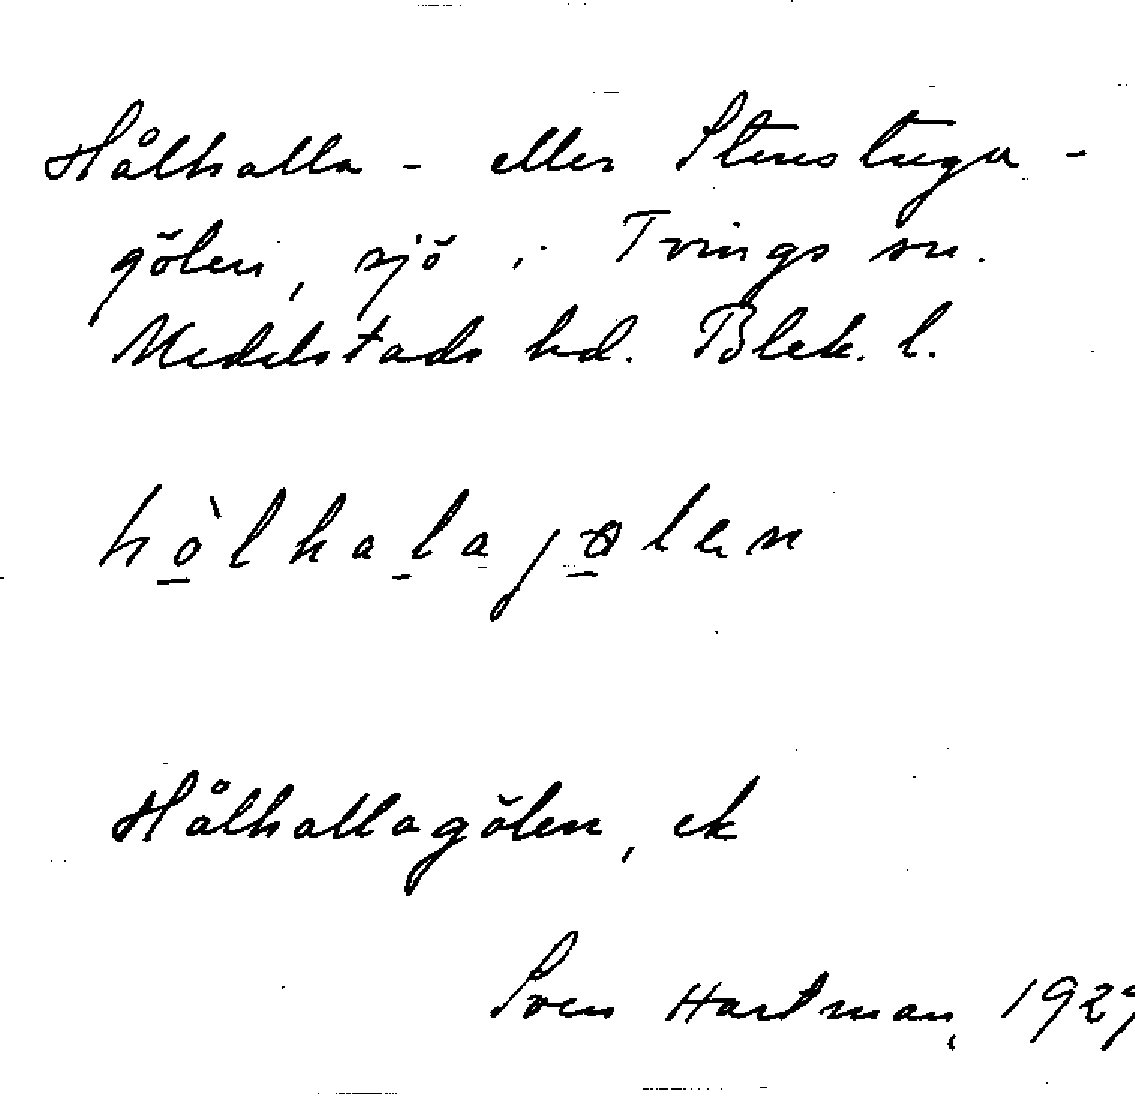 Hålhalla- eller Stenstuga-
gölen, sjö i Tvings sn.
Medelstads hd. Blek. l.
hò̱lhaḻa̱jø̱len
Hålhallagölen, ek
Sven Hartman, 1929